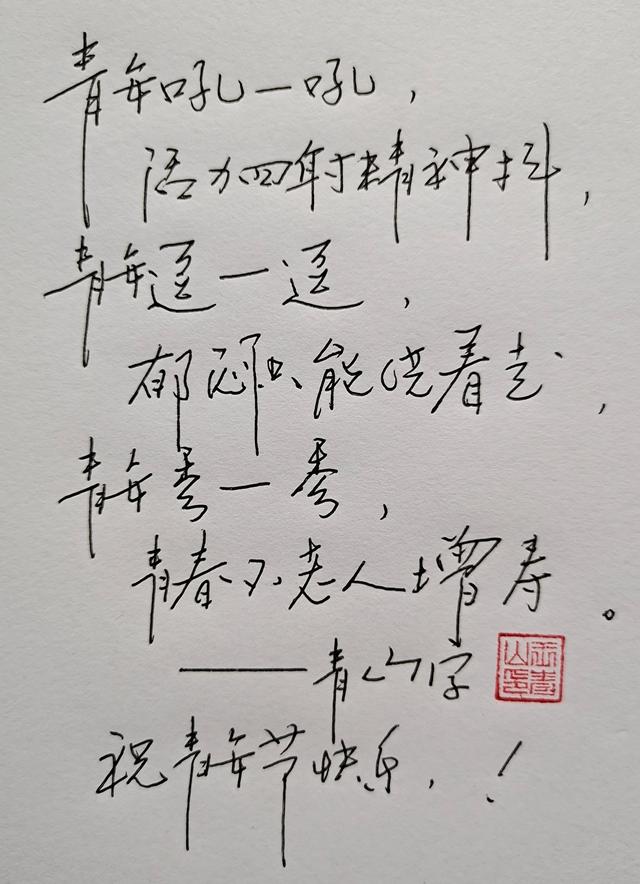 青年吼一吼，
活力四射精神抖，
青年逗一逗，
郁闷只能绕着走，
青年秀一秀，
青春不老人增寿。
——青山字
祝青年节快乐！